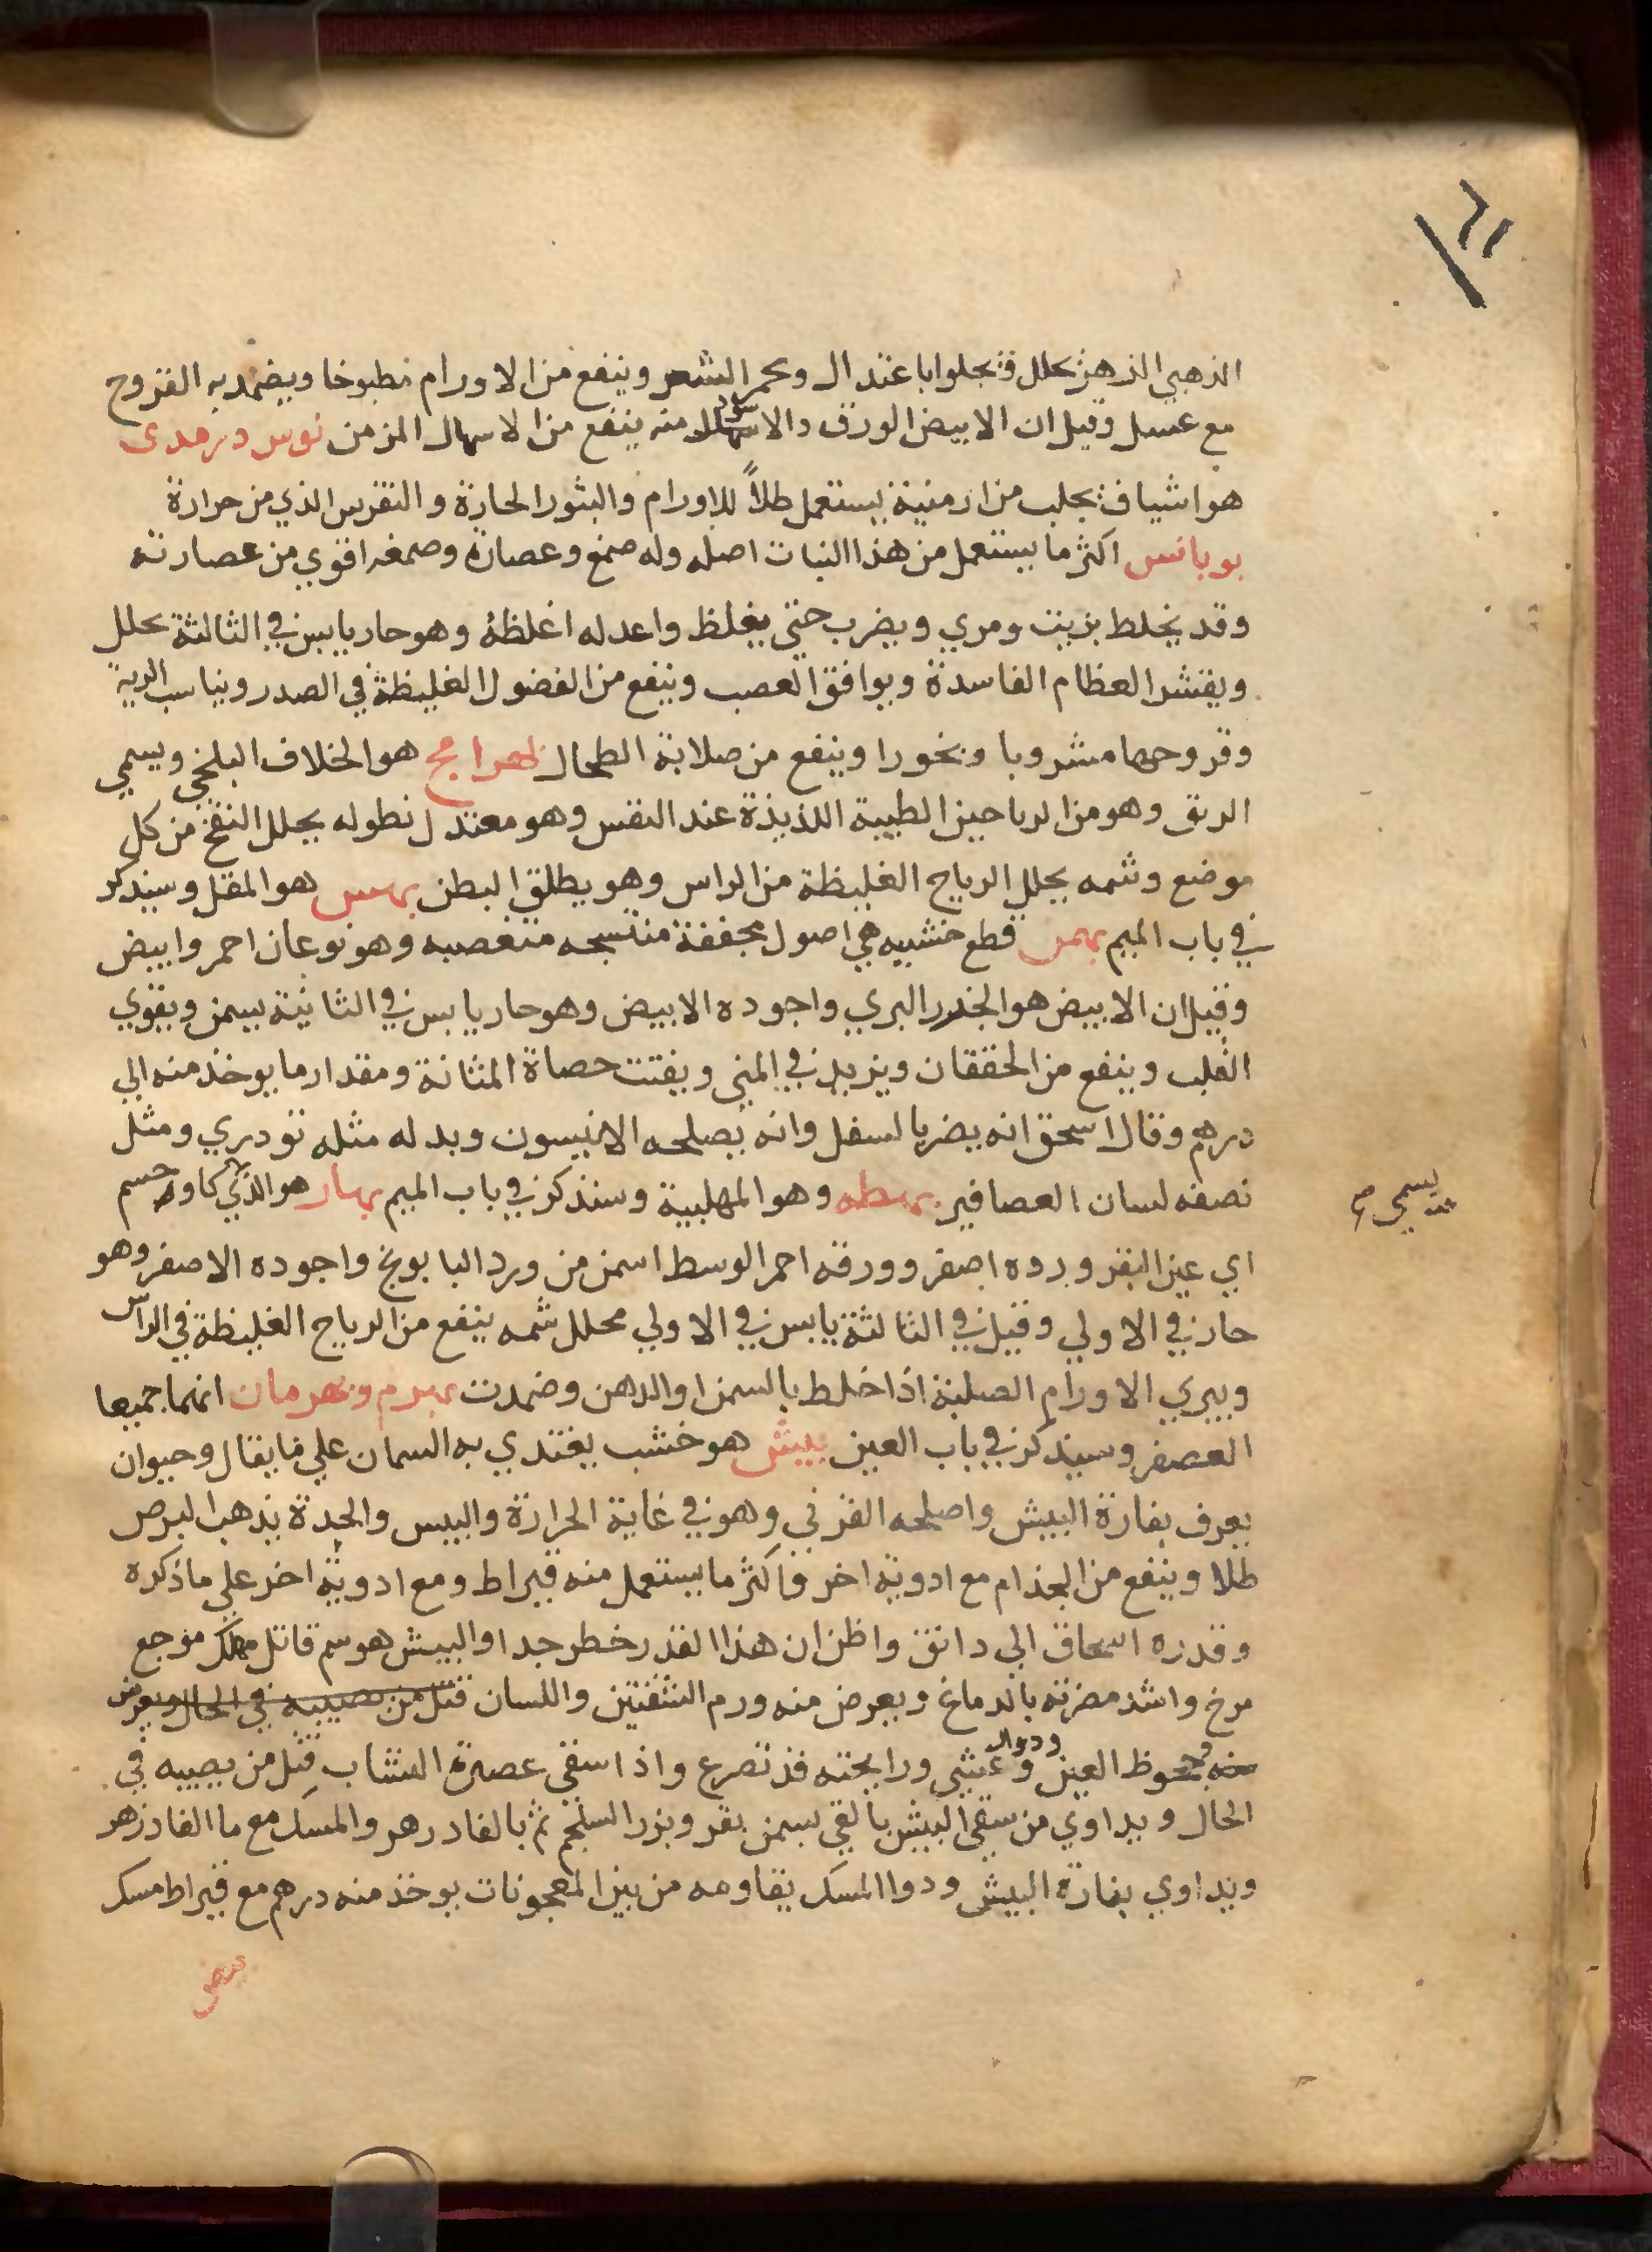 ٦١
الذهبي الزهر يحلل ويجلوا باعتدال ويحمر الشعر وينفع من الاورام مطبوخا ويضمد به القروح
مع عسل وقيل ان الابيض الورق والاسود منه ينفع من الاسهال المزمن بوس دربندى
هو اشياف يجلب من ارمنية يستعمل طلاً للاورام والبثور الحارة والنقرس الذي من حرارة
بوبانس اكثر ما يستعمل من هذا النبات اصله وله صمغ وعصارة وصمغه اقوي من عصارته
وقد يخلط بزيت ومري ويضرب حتي يغلظ واعدله اغلظة وهو حار يابس في الثالثة يحلل
ويقشر العظام الفاسدة ويوافق العصب وينفع من الفضول الغليظة في الصدر ويناسب الرية
وقروحها مشروبا وبخورا وينفع من صلابة الطحال بهرامج هو الخلاف البلخي ويسمي
الرنق وهو من الرياحين الطيبة اللذيذة عند النفس وهو معتدل نطوله يحلل النفخ من كل
موضع وشمه يحلل الرياح الغليظة من الراس وهو يطلق البطن بهس هو المقل وسيذكر
في باب الميم بهمن قطع خشبيه هي اصول مجففة متشجه متغصبه وهو نوعان احمر وابيض
وقيل ان الابيض هو الجزر البري واجوده الابيض وهو حار يابس في الثانية يسمن ويقوي
القلب وينفع من الخفقان ويزيد في المني ويفتت حصاة المثانة ومقدار ما يوخذ منه الي
درهم وقال اسحق انه يضر بالسفل وانه يصلحه الانيسون وبدله مثله تودري ومثل
نصفه لسان العصافير بهطه وهو المهلبية وسنذكر في باب الميم بهار هو الذي كاوجسم
يسمي صح
اي عين البقر ورده اصفر وورقه احمر الوسط اسمن من ورد البابونج واجوده الاصفر وهو
حار في الاولي وقيل في الثالثة يابس في الاولي محلل شمه ينفع من الرياح الغليظة في الراس
ويبري الاورام الصلبة اذا خلط بالسمن او الدهن وضمدت بهرم وبهرمان انهما جميعا
العصفر وسيذكر في باب العين بيش هو خشب يغتدي به السمان علي ما يقال وحيوان
يعرف بفارة البيش واصلحه القرني وهو في غاية الحرارة واليبس والحدة يذهب البرص
طلا وينفع من الجذام مع ادوية اخر واكثر ما يستعمل منه قيراط ومع ادوية اخر علي ما ذكره
وقدره اسحاق الي دانق واظن ان هذا القدر خطر جدا والبيش هو سم قاتل مهلك موجع
مرخ واشد مضرته بالدماغ ويعرض منه ورم الشفتين واللسان قتل من يصيبه في الحال ويعرض
منه وجحوظ العين ودوار وغشي ورايحته قد تصرع واذا سقي عصيره النشاب قتل من يصيبه في
الحال ويداوي من سقي البيش بالقي بسمن بقر وبزر السلجم ثم بالفادرهر والمسك مع ما الفادزهر
ويداوي بفارة البيش ودوا المسك يقاومه من بين المعجونات يوخذ منه درهم مع قيراط مسك